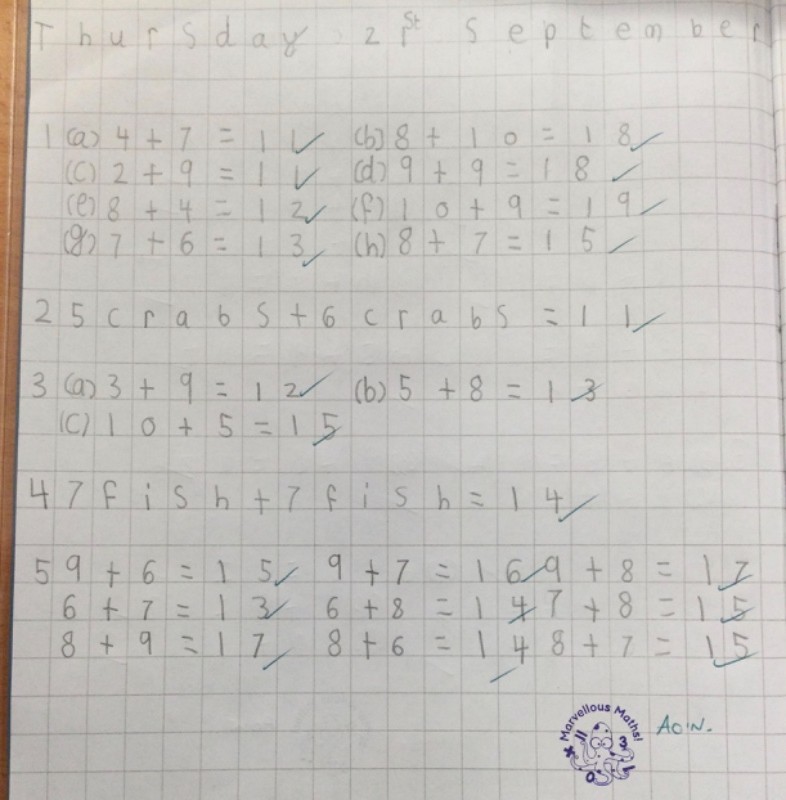 Thursday 21st September
1 (a) 4 + 7 = 11 (b) 8 + 10 = 18
(c) 2 + 9 = 11 (d) 9 + 9 = 18
(e) 8 + 4 = 12 (f) 10 + 9 = 19
(g) 7 + 6 = 13 (h) 8 + 7 = 15
2 5 crabs + 6 crabs = 11
3 (a) 3 + 9 = 12 (b) 5 + 8 = 13
(c) 10 + 5 = 15
4 7 fish + 7 fish = 14
5 9 + 6 = 15 9 + 7 = 16 9 + 8 = 17
6 + 7 = 13 6 + 8 = 14 7 + 8 = 15
8 + 9 = 17 8 + 6 = 14 8 + 7 = 15
Marvellous Maths!